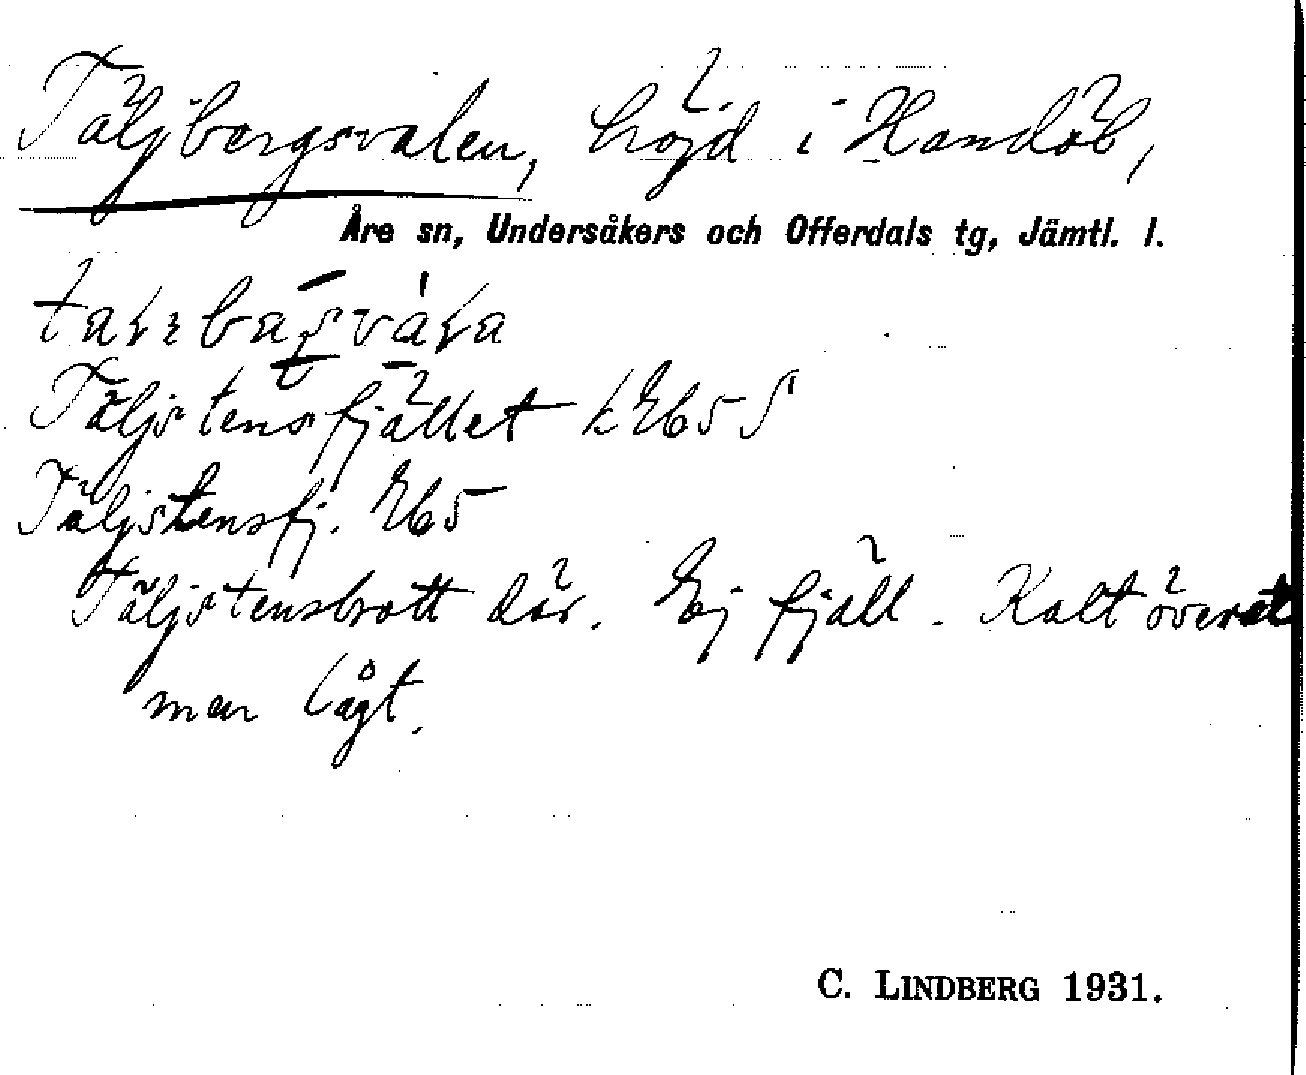 Täljbergsvalen, höjd i Handöl,
Åre sn, Undersåkers och Offerdals tg, Jämtl. l.
Täljstensfjället k E65 S
Täljstensfj. E65
Täljstensbrott där. Ej fjäll. Kalt överst
men lågt.
C. LINDBERG 1931.